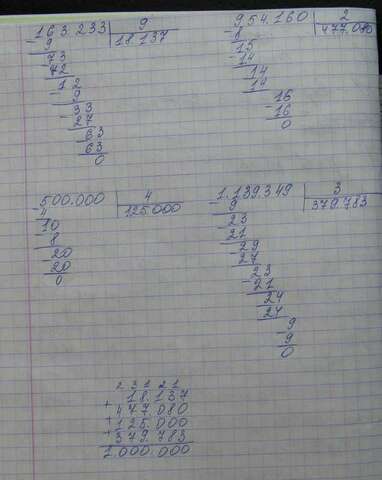 163.233 9
9 18.137
73
72
12
9
33
27
63
63
0
954.160 2
8 477.080
15
14
14
14
16
16
0
500.000 4
4 125.000
10
8
20
20
0
1.139.349 3
9 379.783
23
21
29
27
23
21
24
24
9
9
0
2 3 1 2 1
18.137
+ 477.080
+ 125.000
+ 379.783
1.000.000